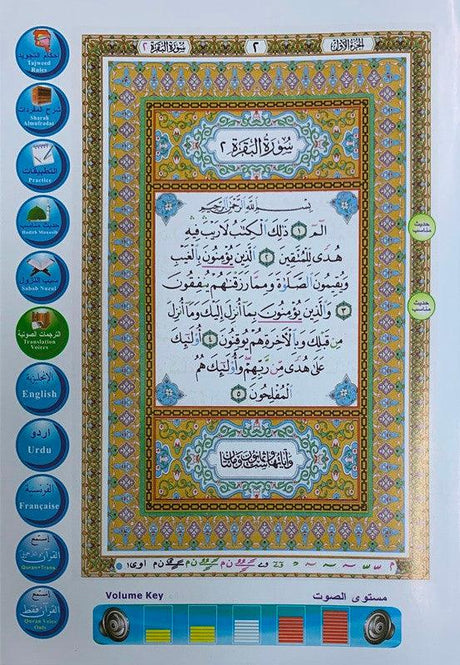 الجزء الأول
٢
سورة البقرة ٢
سُورَةُ البَقَرَة ٢
بِسْمِ اللَّهِ الرَّحْمَٰنِ الرَّحِيمِ
الٓمٓ ١ ذَٰلِكَ الْكِتَٰبُ لَا رَيْبَ فِيهِ
هُدًى لِّلْمُتَّقِينَ ٢ الَّذِينَ يُؤْمِنُونَ بِالْغَيْبِ
وَيُقِيمُونَ الصَّلَوٰةَ وَمِمَّا رَزَقْنَٰهُمْ يُنفِقُونَ
٣ وَالَّذِينَ يُؤْمِنُونَ بِمَا أُنزِلَ إِلَيْكَ وَمَا أُنزِلَ
مِن قَبْلِكَ وَبِالْآخِرَةِ هُمْ يُوقِنُونَ ٤ أُولَٰئِكَ
عَلَىٰ هُدًى مِّن رَّبِّهِمْ وَأُولَٰئِكَ هُمُ
الْمُفْلِحُونَ ٥
حديث
مناسب
حديث
مناسب
أحكام التجويد
Tajweed
Rules
شرح المفردات
Sharah
Almufradat
التطبيقات
Practice
حديث مناسب
Hadith Munasib
سبب النزول
Sabab Nuzul
الترجمات الصوتية
Translation
Voices
الإنجليزية
English
اردو
Urdu
الفرنسية
Française
إستمع
القرآن+الترجمة
Quran+Trans.
إستمع
القرآن فقط
Quran Voice
Only
Volume Key
مستوى الصوت